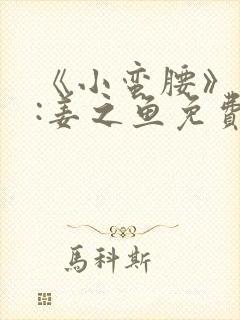 《小蛮腰》
:姜之鱼免費
馬科斯